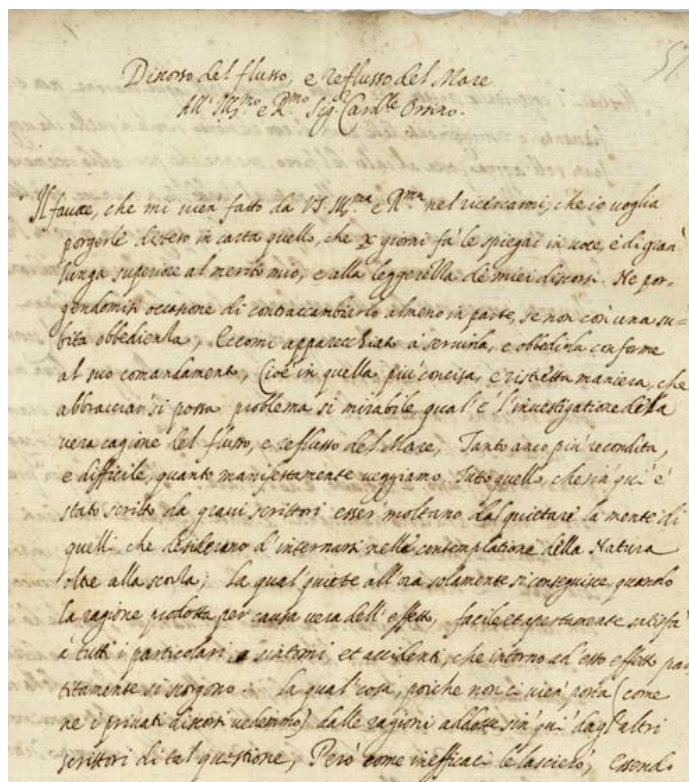 57
Discorso del flusso, e reflusso del Mare
All' Ill.mo e R.mo Sig.r Card.le Orsino.
Il favore, che mi vien' fatto da VS. Ill.ma e R.ma nel ricercarmi, che io voglia
porgerle disteso in carta quello, che X giorni fà le spiegai in voce, è di gran'
lunga superiore al merito mio, e alla leggerezza de miei discorsi. Ne por-
gendomisi occasione di contraccambiarlo almeno in parte, se non con una su=
bita obbedienza, Eccomi apparecchiato à servirla, e obbedirla conforme
al suo comandamento, Cioè in quella più concisa, e ristretta maniera, che
abbracciar' si possa problema si mirabile, qual' è l'investigatione della
vera cagione del flusso, e reflusso del Mare, Tanto anco più recondita,
e difficile, quanto manifestamente veggiamo, Tutto quello, che sin' qui è
stato scritto da gravi scrittori esser' molto dal quietare la mente di
quelli, che desiderano d'internarsi nella contemplatione della Natura
oltre alla scorza; La qual' quiete all'ora solamente si conseguisce, quando
la ragione prodotta per causa vera dell' effetto, facile et apertamente satisfà
à tutti i particolari sintomi et accidenti, che intorno ad' esto effetto par
titamente si scorgono: La qual' cosa, poiche non ci vien' porta (come
ne i privati discorsi vedemmo) dalle ragioni addotte sin' qui dagl' altri
scrittori di tal' questione, Però come inefficaci le lascierò, Essendo